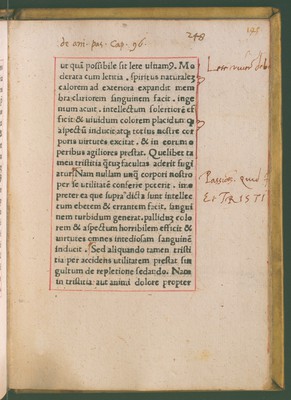 de ani. pas. Cap. 96.
248
ut quā possibile sit fere ulnam9. Mo
derata eum letitia. spiritus naturales
calorem ad exteriora expandit mem
bra: clariorem sanguinem facit. inge
nium acuit. intellectum solertiorē ef
ficit & uiuidum colorem placidum q3
aspectū inducit: atq3 totius nostre cor
poris uirtutes excitat. & in eorum o
peribus agiliores prestat. Quelibet ta
men tristitia
Nam nullam unq̄ corpori nostro
per se utilitatē conferre poterit. imo
preter ea que supra dicta sunt intellec
tum ebetem & errantem facit. sangui
nem turbidum generat. pallidūq3 colo
rem & aspectum horribilem efficit &
uirtutes omnes
inducit. Sed aliquando tamen tristi
tia per accidens utilitatem prestat. sin
gultum de repletione sedando. Nam
in tristitia: aut animi dolore propter